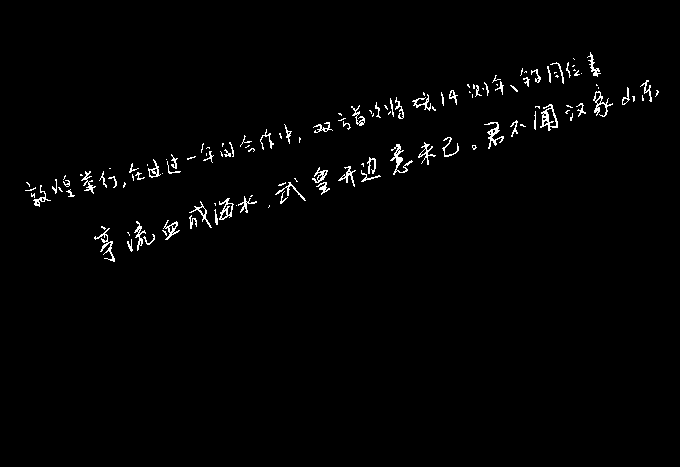 敦煌举行,在过过一年的合作中,双方首次将碳14测年、锶同位素
亭流血成海水,武皇开边意未已。君不闻汉家山东